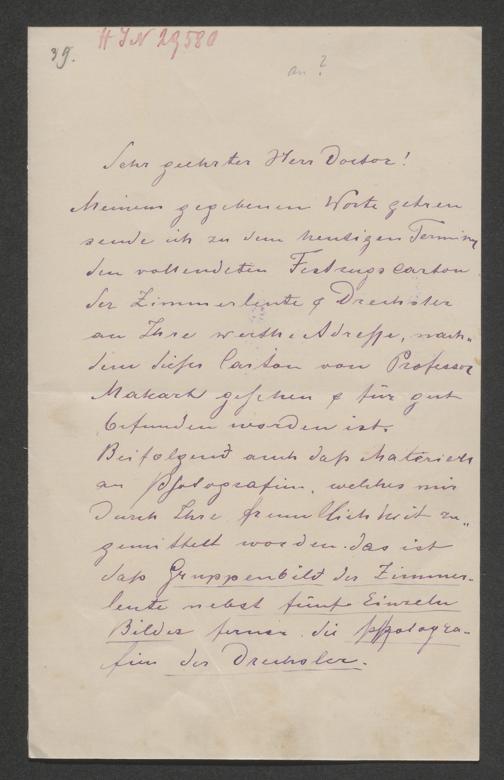 H I N 29580
39.
an?
Sehr geehrter Herr Doctor!
Meinem gegebenen Worte getreu
sende ich zu dem heutigen Termine
den vollendeten Festzugscarton
der Zimmerleute & Drechsler
an Ihre werthe Adresse, nach„
dem dieser Carton von Professor
Makart gesehen & für gut
befunden worden ist.
Beifolgend auch daß Materiell
an Photografien, welches mir
durch Ihre freundlichkeit zu„
gemittelt worden. das ist
daß Gruppenbild der Zimmer-
leute nebst fünf Einzeln
Bilder ferner die Photogra-
fien der Drechsler.